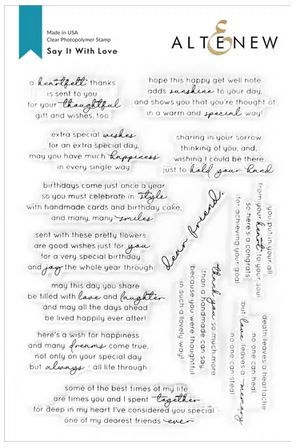 Made in USA
Clear Photopolymer Stamp
Say It With Love
ALTENEW
a heartfelt thanks
is sent to you
for your thoughtful
gift and wishes, too
hope this happy get well note
adds sunshine to your day,
and shows you that you're thought of
in a warm and special way!
extra special wishes
for an extra special day,
may you have much happiness
in every single way
sharing in your sorrow
thinking of you, and,
wishing I could be there
just to hold your hand
birthdays come just once a year
so you must celebrate in style
with handmade cards and birthday cake,
and many, many smiles
dear friend,
you put in your all
from your heart to your soul
so here's a congrats
for achieving your goal!
sent with these pretty flowers
are good wishes just for you
for a very special birthday
and joy the whole year through
thank you so much more
than a handmade can say,
because you were thoughtful
in such a lovely way!
may this day you share
be filled with love and laughter
and may all the days ahead
be lived happily ever after!
death leaves a heartache
no one can heal,
but love leaves a memory
no one can steal
here's a wish for happiness
and many dreams come true,
not only on your special day
but always all life through
some of the best times of my life
are times you and I spent together
for deep in my heart I've considered you special
one of my dearest friends ever